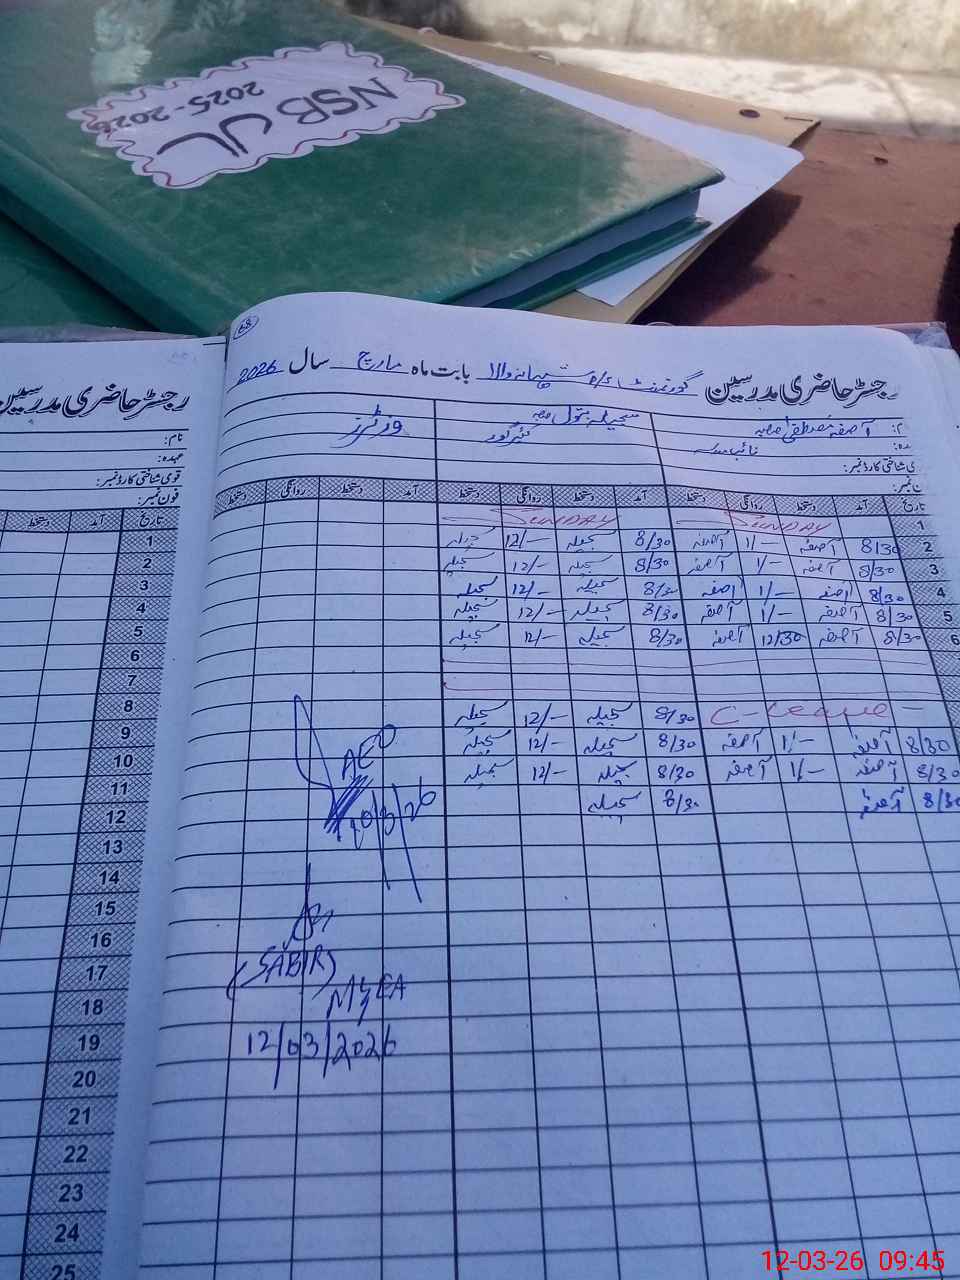 NSB JL
2025-2026
68
رجسٹر حاضری مدرسین گورنمنٹ بابت ماہ مارچ سال 2026
آصفہ مصطفیٰ سجیلہ بتول وزٹرز
نائب قاصد کئیر گیور
شناختی کارڈ نمبر:
آمد دستخط روانگی دستخط آمد دستخط روانگی دستخط آمد دستخط روانگی دستخط
1 SUNDAY SUNDAY
2 8/30 آصفہ 1/- آصفہ 8/30 سجیلہ 12/- سجیلہ
3 8/30 آصفہ 1/- آصفہ 8/30 سجیلہ 12/- سجیلہ
4 8/30 آصفہ 1/- آصفہ 8/30 سجیلہ 12/- سجیلہ
5 8/30 آصفہ 1/- آصفہ 8/30 سجیلہ 12/- سجیلہ
6 8/30 آصفہ 12/30 آصفہ 8/30 سجیلہ 12/- سجیلہ
C-Leave 8/30 سجیلہ 12/- سجیلہ
8/30 آصفہ 1/- آصفہ 8/30 سجیلہ 12/- سجیلہ
8/30 آصفہ 1/- آصفہ 8/30 سجیلہ 12/- سجیلہ
8/30 آصفہ 8/30 سجیلہ
AEO
10/3/26
(SABIR)
MEA
12/03/2026
رجسٹر حاضری مدرسین
نام:
عہدہ:
قومی شناختی کارڈ نمبر:
فون نمبر:
تاریخ آمد دستخط
1
2
3
4
5
6
7
8
9
10
11
12
13
14
15
16
17
18
19
20
21
22
23
24
25
12-03-26 09:45